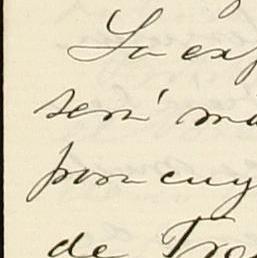 La exp
será ma
por cuy
de Tro